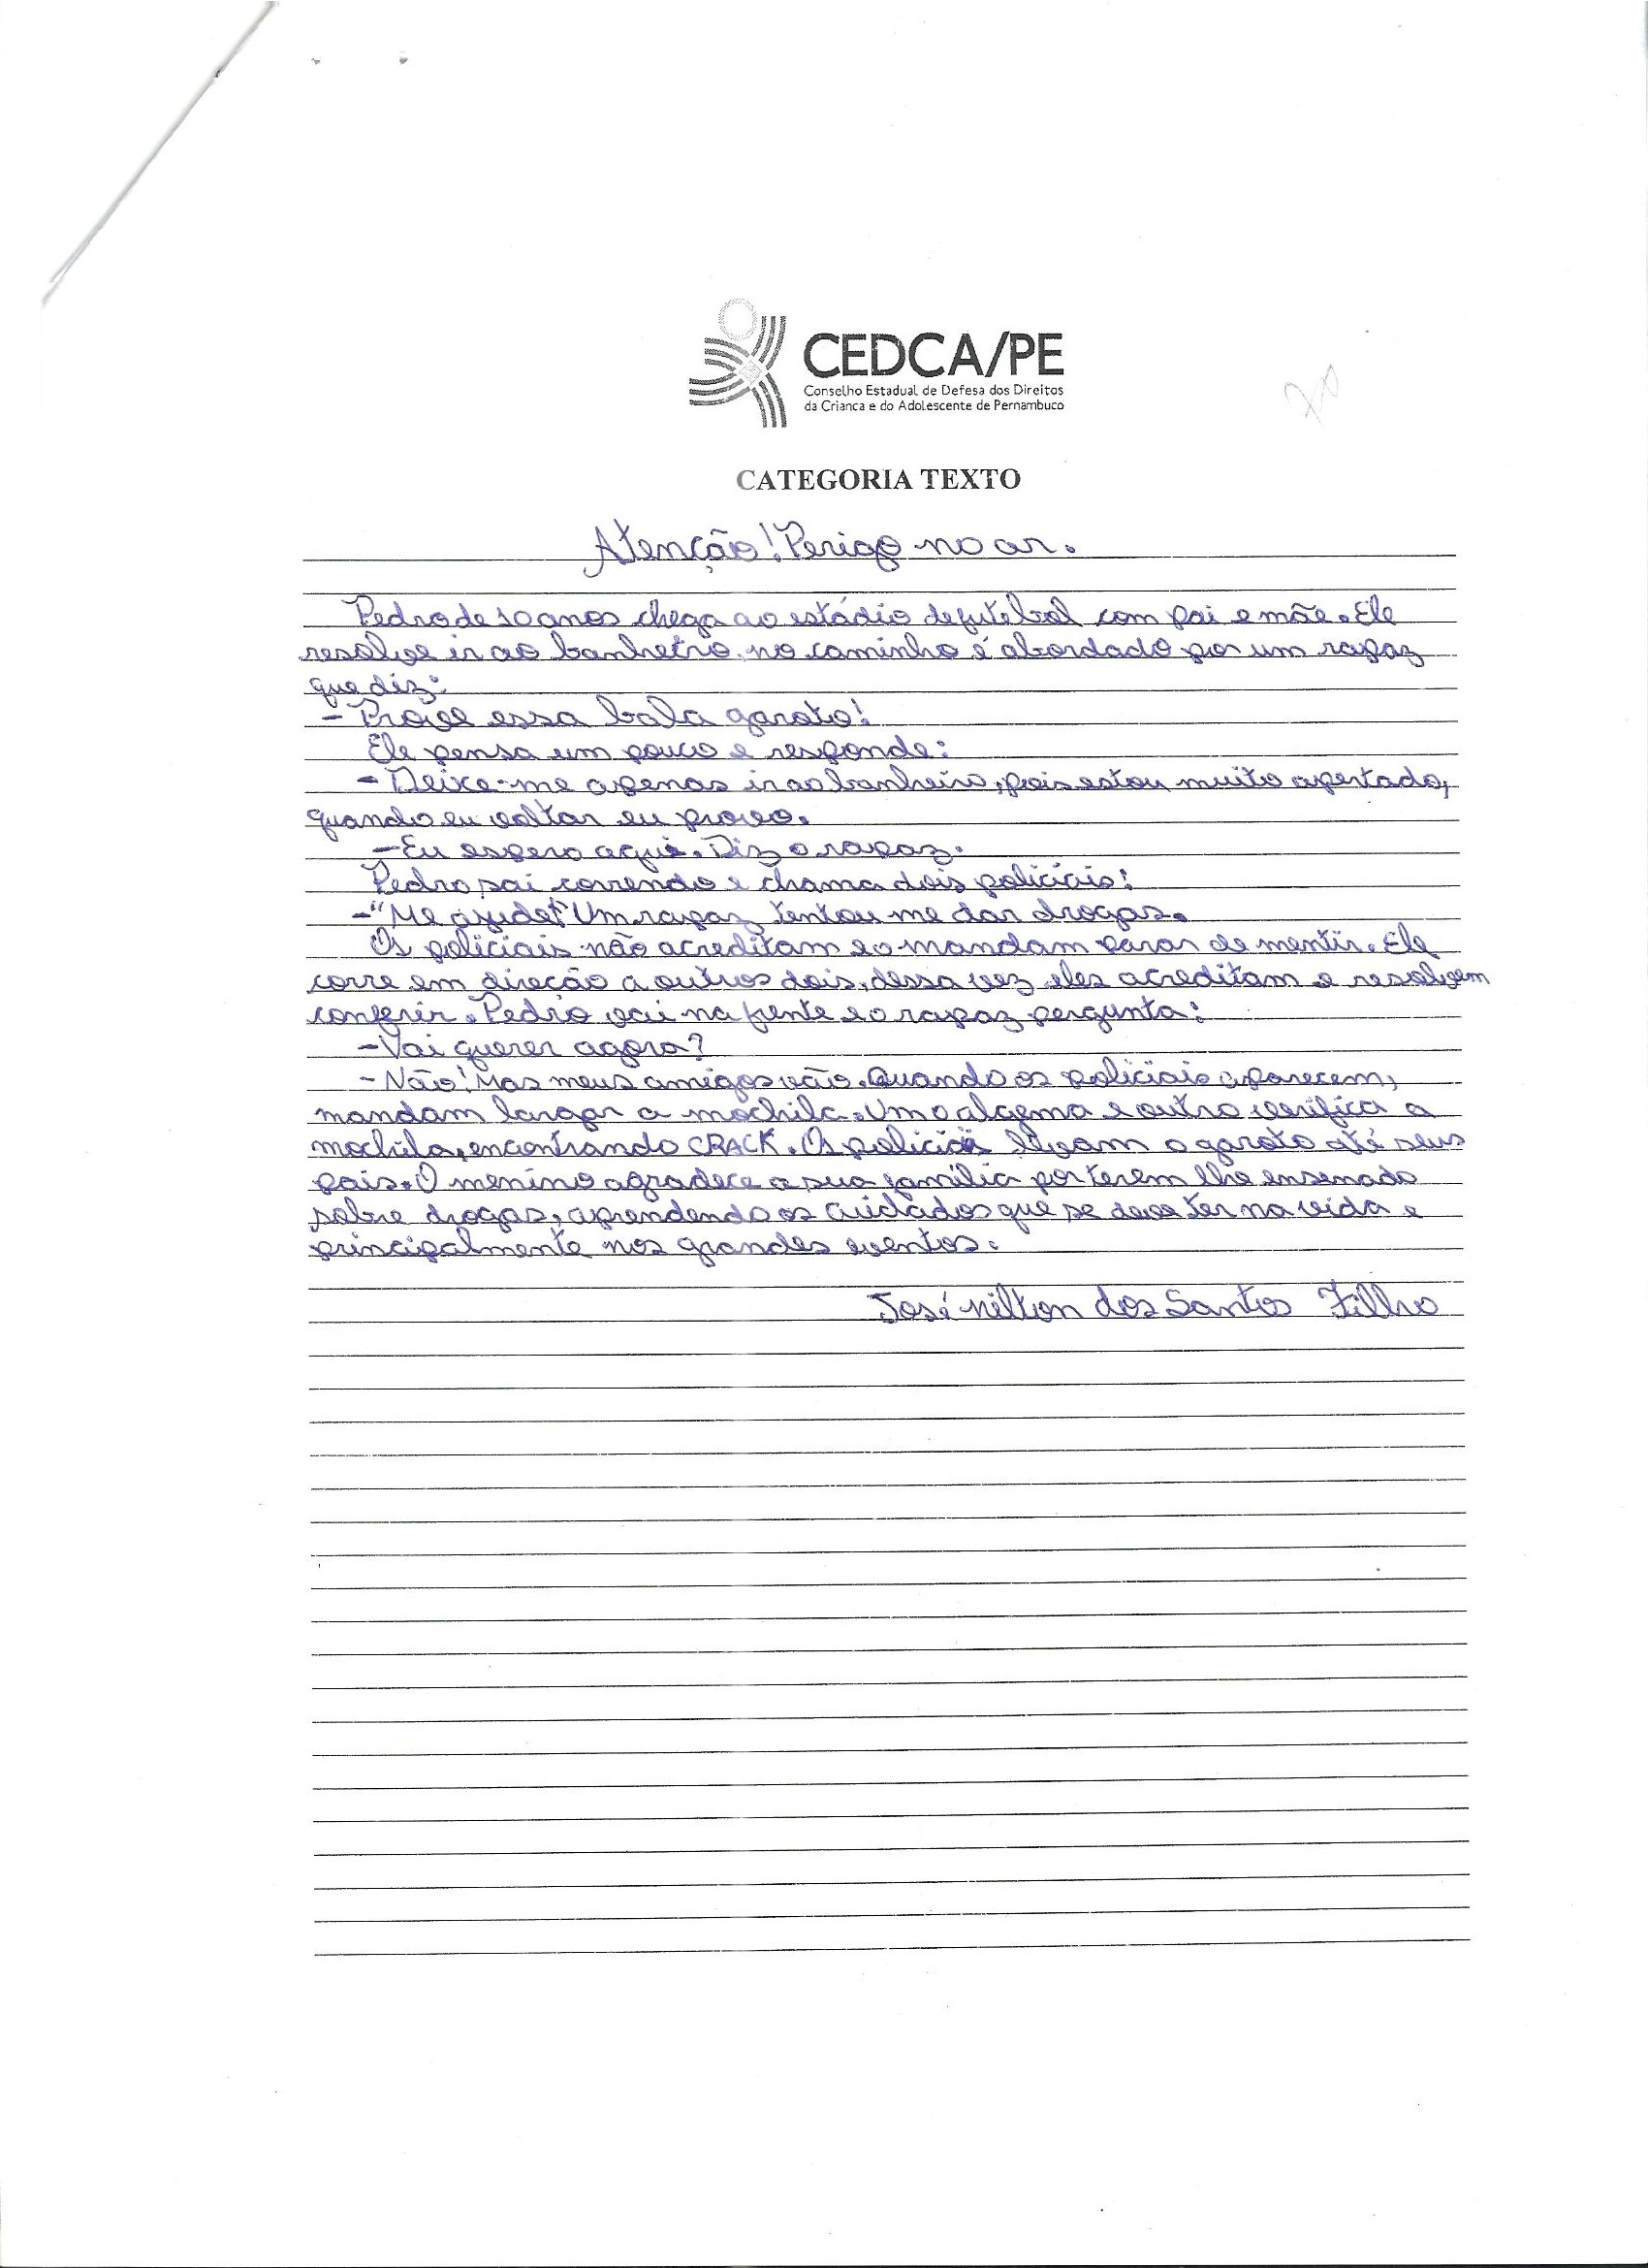 CEDCA/PE
Conselho Estadual de Defesa dos Direitos
da Crianca e do Adolescente de Pernambuco
CATEGORIA TEXTO
Atenção! Perigo no ar.
Pedro de 10 anos chega ao estádio de futebol com pai e mãe. Ele
resolve ir ao banheiro, no caminho é abordado por um rapaz
que diz:
- Prove essa bala garoto!
Ele pensa um pouco e responde:
- Deixe-me apenas ir ao banheiro, pois estou muito apertado,
quando eu voltar eu provo.
- Eu espero aqui. Diz o rapaz.
Pedro sai correndo e chama dois policiais:
- "Me ajude!" Um rapaz tentou me dar drogas.
Os policiais não acreditam e o mandam parar de mentir. Ele
corre em direção a outros dois, dessa vez eles acreditam e resolvem
conferir. Pedro vai na frente e o rapaz pergunta:
- Vai querer agora?
- Não! Mas meus amigos vão. Quando os policiais aparecem,
mandam largar a mochila. Um o algema e outro verifica a
mochila, encontrando CRACK. Os policiais levam o garoto até seus
pais. O menino agradece a sua família por terem lhe ensinado
sobre drogas, aprendendo os cuidados que se deve ter na vida e
principalmente nos grandes eventos.
José nilton dos Santos Filho